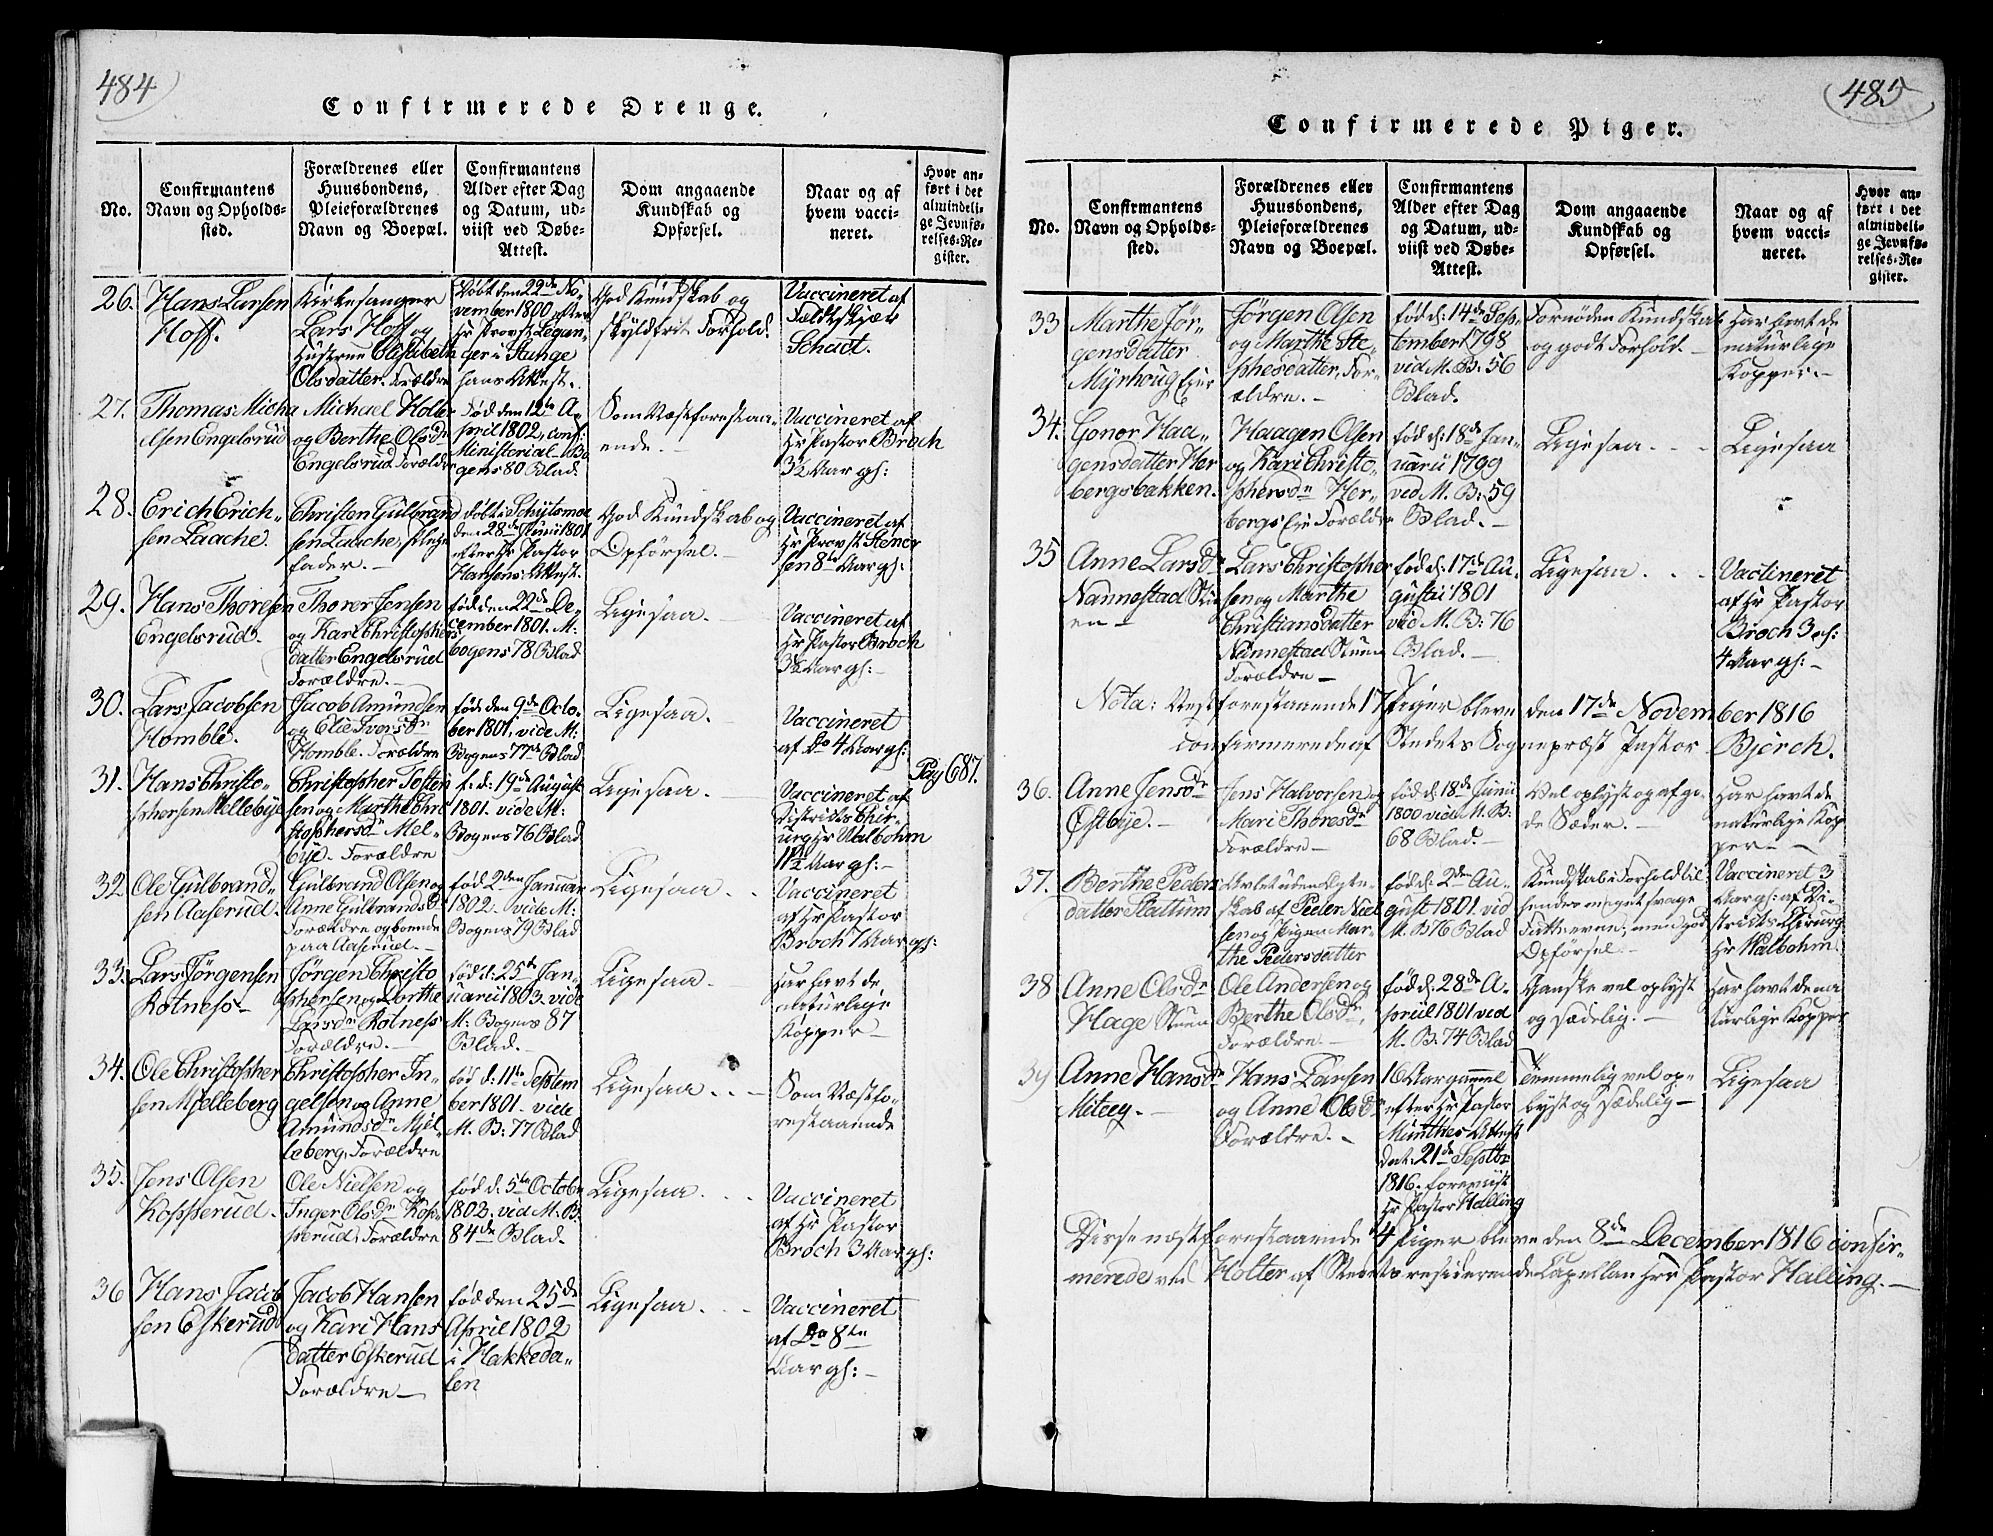 484
Confirmerede Drenge.
No.
Confirmantens
Navn og Opholds-
sted.
Forældrenes eller
Huusbondens,
Pleieforældrenes
Navn og Boepæl.
Confirmantens
Alder efter Dag
og Datum, ud-
viist ved Døbe-
Attest.
Dom angaaende
Kundskab og
Opførsel.
Naar og af
hvem vacci-
neret.
Hvor an-
ført i det
almindeli-
ge Jevnfø-
relses-Re-
gister.
26.
Hans Larsen
Hoff.
Kirkesanger
Lars Hoff og
Hustrue Elisabeth
Olsdatter. Forældre
Døbt den 22de No-
vember 1800 efter
Hr Provst Legan-
ger i Stange
hans Attest.
God Kundskab og
skyldfrit Forhold.
Vaccineret af
Feldtskjær
Schadt.
27.
Thomas Micha
elsen Engelsrud
Michael Holte
og Berthe Olsdr
Engelsrud Forældre
Fød den 12te A-
pril 1802, conf:
Ministerial-Bo
gens 80 Blad.
Som Næstforestaa-
ende.
Vaccineret af
Hr Pastor Broch
3½ Aar gl:
28.
Erich Erich-
sen Laache.
Christen Gulbrand
sen Laache, Pleje
fader.
Døbt i Schydsmoe
den 28de Junii 1801
efter Hr Pastor
Hansens Attest.
God Kundskab og
Opførsel.
Vaccineret af
Hr Provst Stener
sen 8te Aar gl:
29.
Hans Thoresen
Engelsrud.
Thorer Jensen
og Kari Christophers
datter Engelsrud
Forældre.
fød den 22de De-
cember 1801. M:
bogens 78 Blad
Ligesaa.
Vaccineret af
Hr Pastor Broch
3½ Aar gl:
30.
Lars Jacobsen
Homble.
Jacob Amundsen
og Elie Iversdr
Homble. Forældre
fød den 9de Octo-
ber 1801, vide M:
Bogens 77de Blad
Ligesaa.
Vaccineret
af Do 4 Aar gl:
31.
Hans Christo-
phersen Mellebye
Christopher Tosten
sen og Marthe Chri
stophersdr Mel-
bye. Forældre
f: d: 19de August
1801. vide M:
Bogens 76 Blad
Ligesaa.
Vaccineret af
Districts Chir-
urg Hr Walbohm
11½ Aar gl:
Pag 687.
32
Ole Gulbrand-
sen Aaserud.
Gulbrand Olsen og
Anne Gulbrandsdr
Forældre og boende
paa Aaserud.
fød 2den Januar
1802. vide M:
Bogens 79 Blad
Ligesaa
Vaccineret
af Hr Pastor
Broch 7 Aar gl:
33.
Lars Jørgensen
Rotness
Jørgen Christo
phersen og Dorthe
Larsdr Rotness
Forældre.
fød d: 25de Jan-
uarii 1803. vide
M: Bogens 87
Blad.
Ligesaa.
Har havt de
naturlige
Kopper
34.
Ole Christopher
sen Mjelleberg
Christopher In-
gelsen og Anne
Amundsdr Mjel-
leberg, Forældre
fød d: 11te Septem
ber 1801. vide
M. B: 77 Blad
Ligesaa
Som Næstfo-
restaaende
35.
Jens Olsen
Kopperud.
Ole Nielsen og
Inger Olsdr Kop-
perud, Forældre
fød d: 5te Octobr
1802. vid M. B:
84de Blad.
Ligesaa.
Vaccineret
af Hr Pastor
Broch 3 Aar gl:
36
Hans Jacob
sen Eskerud
Jacob Hansen
og Kari Hans
datter Eskerud
Forældre
fød den 25de
April 1802
i Hakkeda-
len
Ligesaa.
Vaccineret
af Do 8te
Aar gl:
485
Confirmerede Piger.
No.
Confirmantens
Navn og Opholds-
sted.
Forældrenes eller
Huusbondens,
Pleieforældrenes
Navn og Boepæl.
Confirmantens
Alder efter Dag
og Datum, ud-
viist ved Døbe-
Attest.
Dom angaaende
Kundskab og
Opførsel.
Naar og af
hvem vacci-
neret.
Hvor an-
ført i det
almindeli-
ge Jevnfø-
relses-Re-
gister.
33
Marthe Jør-
gensdatter
Myrhoug Ejer
Jørgen Olsen
og Marthe Ste-
phesdatter, For-
ældre.
fød d: 14de Sep-
tember 1798
vid M. B: 56
Blad.
Fornøden Kundskab
og godt Forhold.
Har havt de
naturlige
Kopper.
34.
Gonor Haa-
gensdatter Her
bergsbakken.
Haagen Olsen
og Kari Christo-
phersdr Her-
bergs Eje Forældre
fød d: 18de Jan-
uarii 1799
ved M. B: 59
Blad.
Ligesaa
Ligesaa
35
Anne Larsdr
Nannestad Stu
en
Lars Christopher
sen og Marthe
Christiansdatter
Nannestad Stuen
Forældre
fød d: 17de Au-
gustii 1801
vid M. B: 76
Blad.
Ligesaa
Vaccineret
af Hr Pastor
Broch 3 a:
4 Aar gl:
Nota: Næstforestaaende 17 Piger bleve den 17de November 1816
confirmerede af Stedets Sognepræst Pastor Bjerch.
36.
Anne Jensdr
Østbye.
Jens Halvorsen og
Mari Thoresdr
Forældre
fød d: 18de Junii
1800 vide M. B:
68 Blad.
Vel oplyst og af go-
de Sæder.
Har havt de
naturlige Kop
per
37.
Berthe Peders
datter Slattum
Avlet uden Ægte-
skab af Peder Niel
sen og Pigen Mar-
the Pedersdatter
fød d: 2den Au-
gust 1801. vid
M. B 76 Blad
Kundskab i Forhold til
hendes meget svage
Fatteevne; men god
Opførsel
Vaccineret 3
Aar gl: af Di-
stricts Chirurg
Hr Walbohm.
38
Anne Olsdr
Hage Stuen
Ole Andersen og
Berthe Olsdr,
Forældre.
fød d: 28de A-
priil 1801 vid
M. B: 74 Blad
Ganske vel oplyst
og sædelig.
Har havt de na
turlige Kopper
39
Anne Hansdr
Miteey.
Hans Larsen
og Anne Olsdr
Forældre.
16 Aar gammel
efter Hr Pastor
Munthes Attest
dat: 21de Septbr
1816. foreviist
Hr Pastor Halling
Temmelig vel op-
lyst og sædelig
Ligesaa
Disse næstforestaaende 4 Piger bleve den 8de December 1816 confir-
merede ved Holter af Stedets residerende Capellan Herr Pastor Halling.